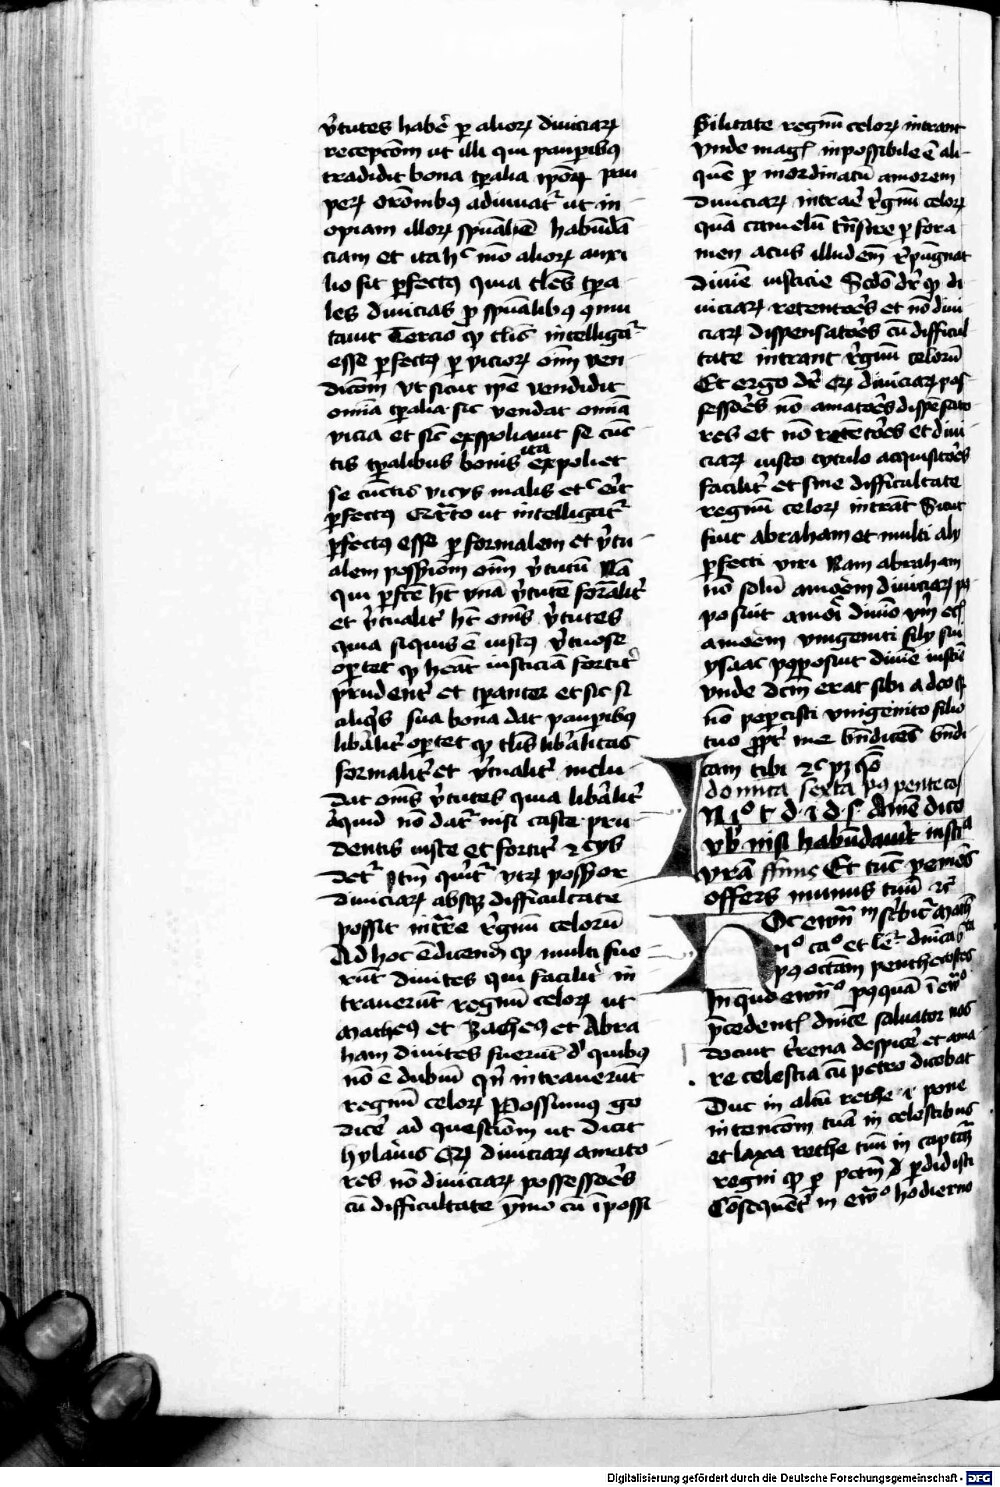 v̄tutes habē ꝑ alioꝝ diuiciaꝝ
recepc̄om ut illi qui paupībꝰ
tradidit bona tꝑalia ip̄oꝝ pau
peꝝ or̄onibꝰ adiuuat᷑ ut in
opiam illoꝝ sp̄ualiē habūdā
ciam et ita hͨ mō alioꝝ auxi
lio fit ꝑfectꝰ quia tl̄es tꝑa
les diuicias ꝓ sp̄ualibꝰ ꝯmu
tauit Tercio ꝙ tl̄is intelligat᷑
esse ꝑfectꝰ ꝑ vicioꝝ om̄ ven
dic̄om vt sicut ip̄e vendidit
omīa tꝑalia sic vendat omīa
vicia et sic̄ exspoliauit se cūc
tis tꝑalibus bonis ita expoliet
se cūctis vicijs malis etͨ erit
ꝑfectꝰ Q̈rto ut intelligat᷑
ꝑfectꝰ esse ꝑ formalem et v̄tu
alem possessiōm om̄ v̄tutū Nā
qui ꝑfc̄e hȳt vnā v̄tutē formalit̄
et v̄tualit̄ hȳt om̄s v̄tutes
quia siquis ē iustꝰ v̄tuose
oꝑtet ꝙ heāt iusticiā fortit̄
prudent̄ et tꝑanter et sic si
aliqͥs sua bona dat paupibꝰ
libālit̄ oꝑtet ꝙ tl̄is libālitas
formalit̄ et v̄tualit̄ inclu
dat om̄s v̄tutes quia libālit̄
aͥquid nō dat᷑ nisi caste pru
dentis iuste et fortit̄ ⁊c̄ ijs
det᷑ Itm̄ querit᷑ vtꝝ possessor
diuiciaꝝ absqꝫ difficultate
possit int̄re r̄gnū celorū
Ad hoc ē dicenđ ꝙ multi fue
rūt diuites qui facilit̄ in
trauerūt regnū celoꝝ ut
Matheꝰ et Zacheꝰ et Abra
ham diuites fuerūt d̄ quibus
nō ē dubiū qn̄ intrauerūt
regnū celoꝝ Possumꝰ go
dicē ad questiōm ut dicit
hylariꝰ Qꝝ diuiciaꝝ amato
res nō diuiciaꝝ possessōes
cū difficultate ȳmo cū īpossi
bilitate regnū celoꝝ intrant
Vnde magꝭ inpossibile ē ali
quē ꝑ inordinatū amorem
diuiciaꝝ intraē r̄gnū celoꝝ
quā camelū tn̄sire ꝑ fora
men acus illud em̄ r̄pūgnat
diuīe iusticie Scd̄o dr̄ ꝙ di
uiciaꝝ retentōes et nō diui
ciaꝝ dispensatōes cū difficul
tate intrant r̄gnū celorū
Et ergo dr̄ Qꝝ diuiciaꝝ pos
sessōes nō amatōes dispēsato
res et nō retētōes et diui
ciaꝝ iusto tytulo acquisitōes
facilit̄ et sine difficultate
regnū celoꝝ intrāt Sicut
fuit abraham et multi alij
ꝑfecti viri Nam abraham
nō solū amoēm diuiciaꝝ pꝰ
posuit amoī diuīo vm̄ ecꝭ
amoēm vnigeniti filij sui
ysaac pꝰposuit diuīe iustīe
Vnde dc̄m erat sibi a deo ꝙ
nō peꝑcisti vnigenito filio
tuo ꝓpt̄ me bn̄dices bn̄di
cam tibi ⁊c pꝫ qō
domica sexta pꝰ penteco
N io t d i d s Amē dico
vob̄ nisi habūdauīt iustia
vr̄a Et tūc veniēs
offers munus tuū ⁊c̄
Oc ewm̄ scͥbit᷑ math
vo cao et le᷑ dn̄ica
pꝰ octām penthecostes
In quo ewn̄o pꝰquā ī ewo
p̄cedentꝭ dnīce saluator nos
docuit t̄rena despicē et ama
re celestia cū petro dicebat
Duc in altū rethe ·i· pone
intenc̄om tuā in celestibus
et laxa rethe tuū in captā
regni ꝙ ꝑ pct̄m ꝑdidisti
Cōsequēt̄ in ewo hodierno
Digitalisierung gefördert durch die Deutsche Forschungsgemeinschaft - DFG